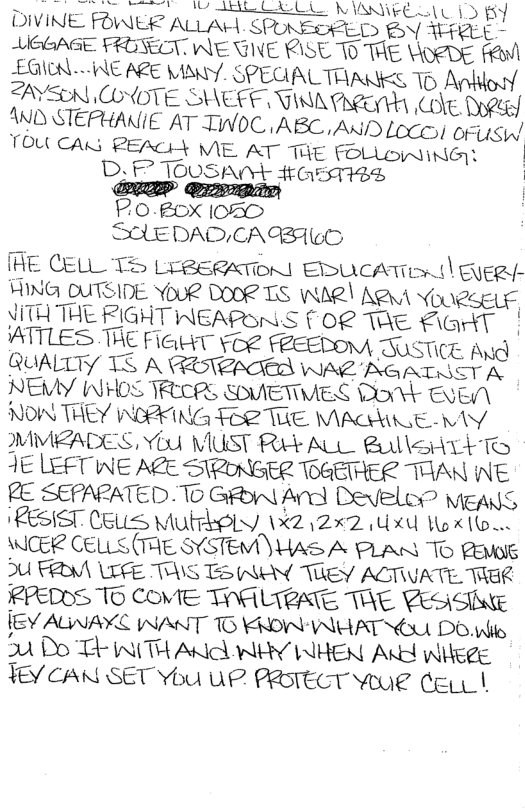 TO THE CELL MANIFESTO IS BY
DIVINE POWER ALLAH. SPONSORED BY #FREE-
LUGGAGE PROJECT. WE GIVE RISE TO THE HORDE FROM
LEGION... WE ARE MANY. SPECIAL THANKS TO ANthONY
RAYSON, COYOTE SHEFF, GINA PARENTI, COLE DORSEY
AND STEPHANIE AT IWOC, ABC, AND LOCO1 OF USW
YOU CAN REACH ME AT THE FOLLOWING:
D.P. TOUSANt #G59788
P.O. BOX 1050
SOLEDAD, CA 93960
THE CELL IS LIBERATION EDUCATION! EVERY-
HING OUTSIDE YOUR DOOR IS WAR! ARM YOURSELF
WITH THE RIGHT WEAPONS FOR THE RIGHT
BATTLES. THE FIGHT FOR FREEDOM, JUSTICE AND
QUALITY IS A PROTRACTED WAR AGAINST A
NEMY WHOS TROOPS SOMETIMES DON't EVEN
NOW THEY WORKING FOR THE MACHINE. MY
OMMRADES, YOU MUST PUt ALL BullSHIt TO
HE LEFT WE ARE STRONGER TOGETHER THAN WE
RE SEPARATED. TO GROW And DEVELOP MEANS
RESIST. CELLS MUltIPLY 1x2, 2x2, 4x4 16x16...
ANCER CELLS (THE SYSTEM) HAS A PLAN TO REMOVE
OU FROM LIFE. THIS IS WHY THEY ACTIVATE THEIR
ORPEDOS TO COME INFILTRATE THE RESISTANCE
HEY ALWAYS WANT TO KNOW WHAT YOU DO. WHO
OU DO It WITH AND WHY WHEN AND WHERE
HEY CAN SET YOU UP. PROTECT YOUR CELL!